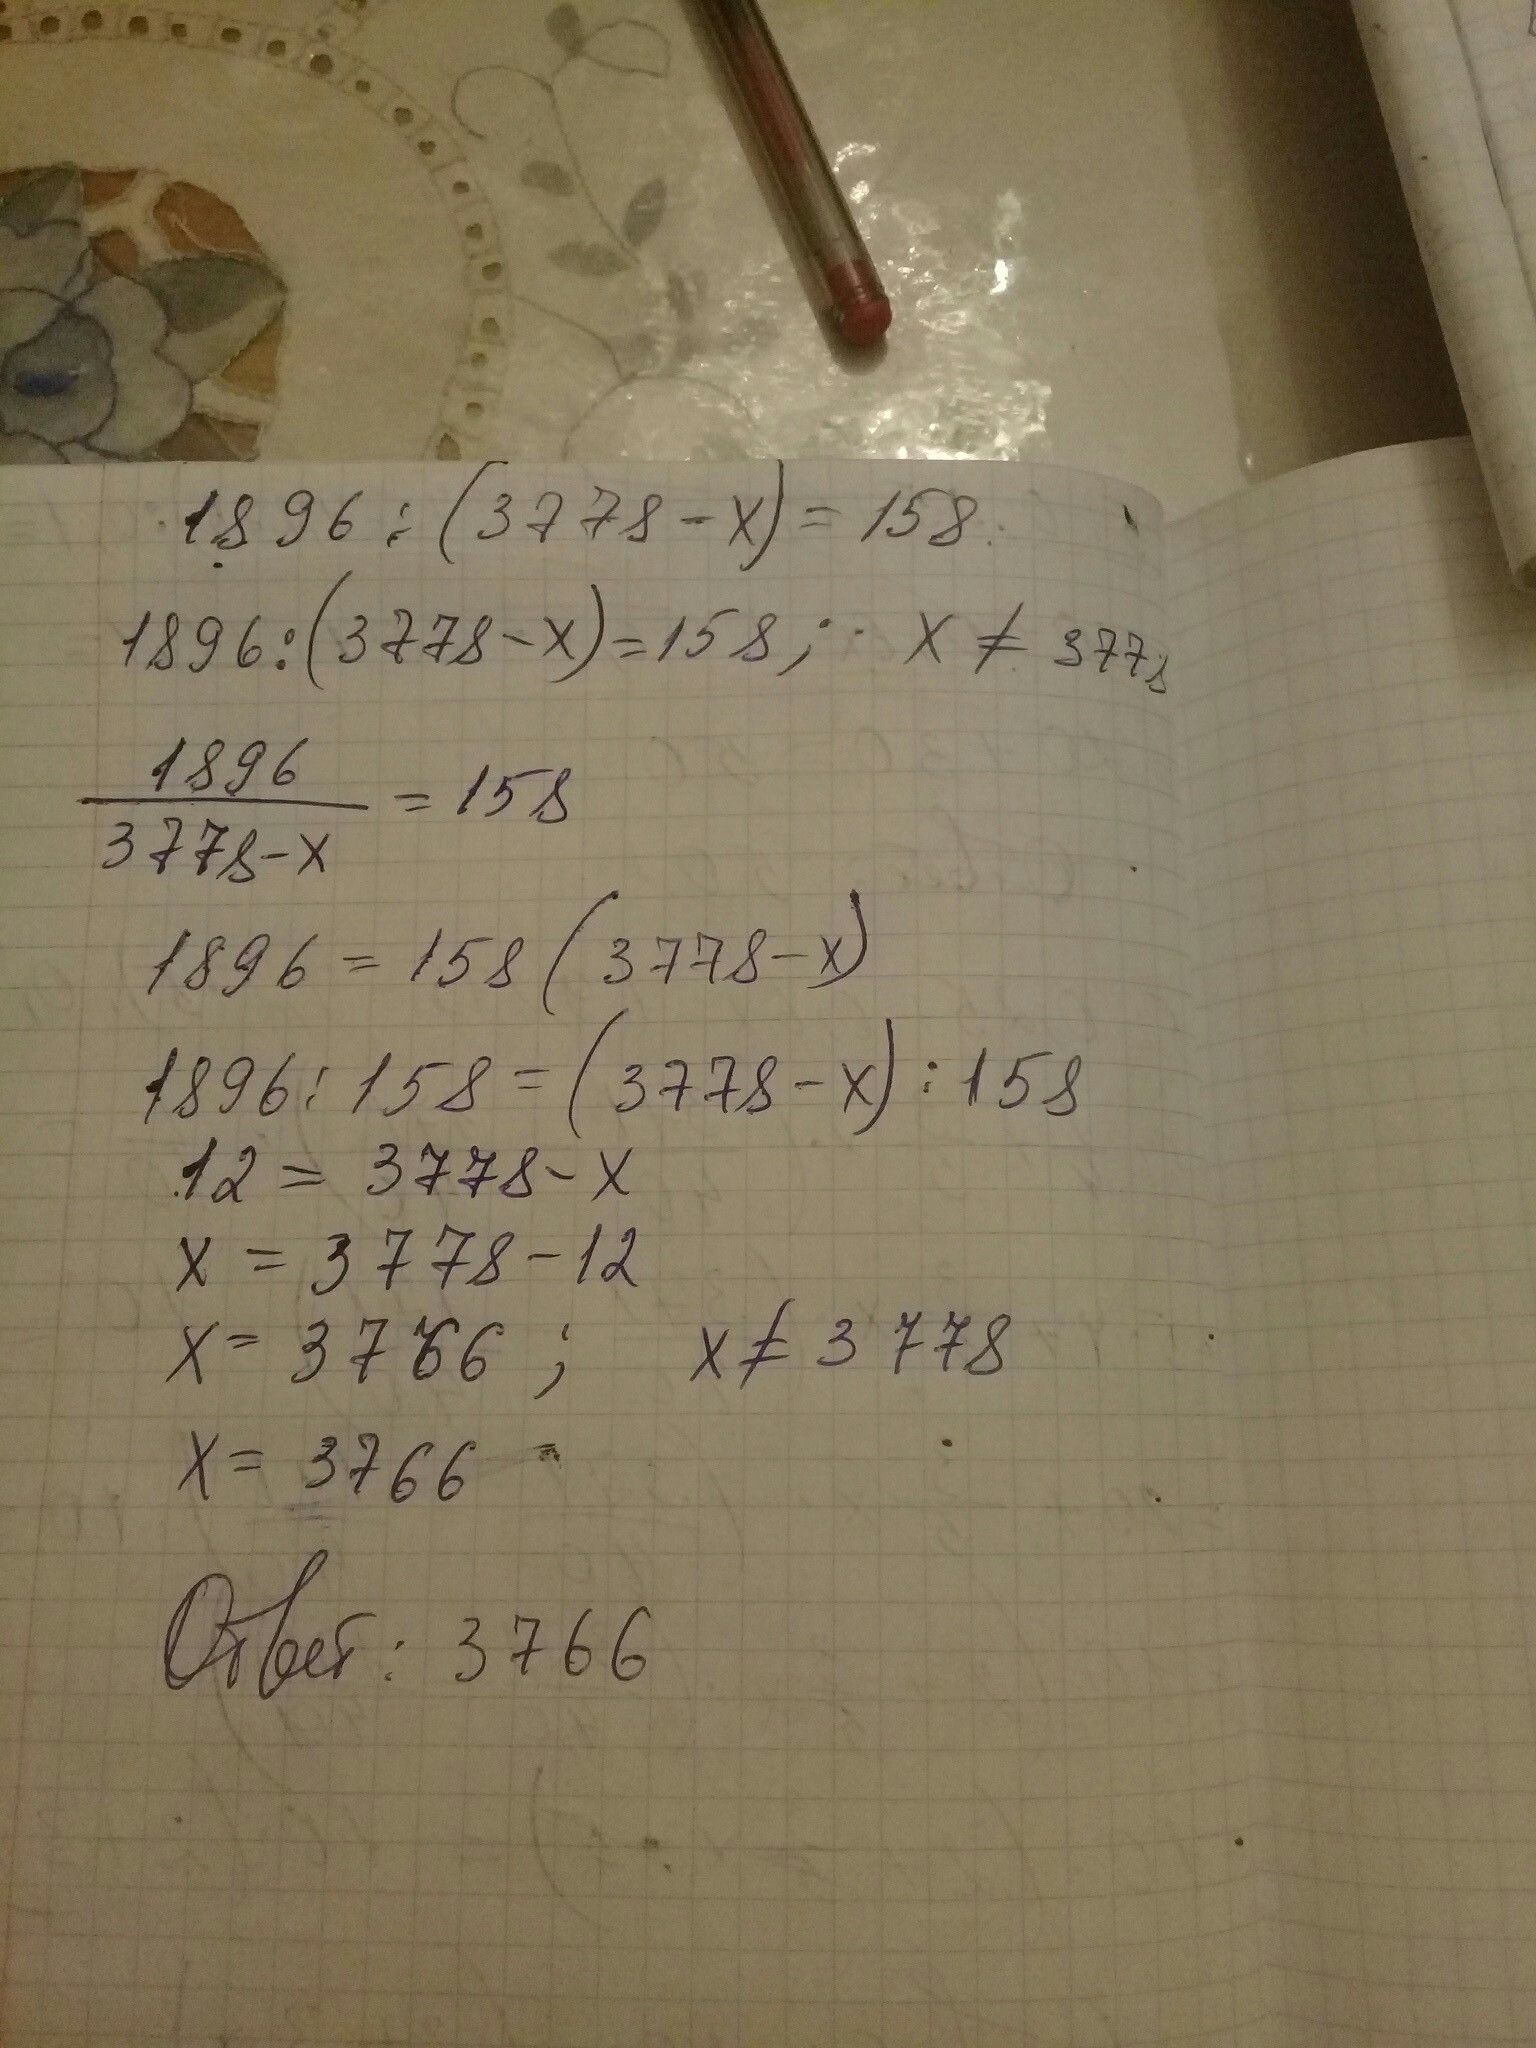 1896 : (3778 - x) = 158
1896 : (3778 - x) = 158; x ≠ 3778
1896
3778 - x = 158
1896 = 158 (3778 - x)
1896 : 158 = (3778 - x) : 158
12 = 3778 - x
x = 3778 - 12
x = 3766 ; x ≠ 3778
x = 3766
Ответ: 3766